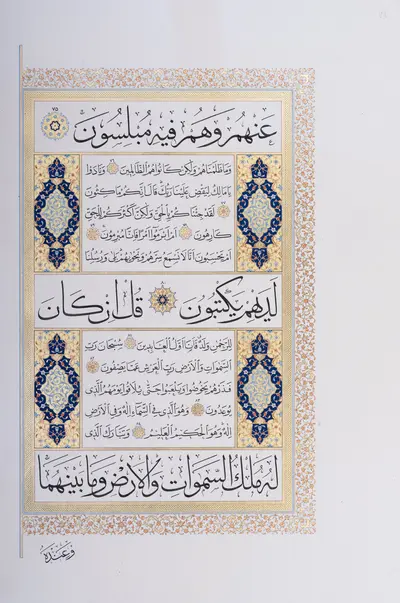 عَنْهُمْ وَهُمْ فِيهِ مُبْلِسُونَ ٧٥
وَمَا ظَلَمْنَاهُمْ وَلَكِنْ كَانُوا هُمُ الظَّالِمِينَ وَنَادَوْا
يَا مَالِكُ لِيَقْضِ عَلَيْنَا رَبُّكَ قَالَ إِنَّكُمْ مَاكِثُونَ
لَقَدْ جِئْنَاكُمْ بِالْحَقِّ وَلَكِنَّ أَكْثَرَكُمْ لِلْحَقِّ
كَارِهُونَ أَمْ أَبْرَمُوا أَمْرًا فَإِنَّا مُبْرِمُونَ
أَمْ يَحْسَبُونَ أَنَّا لَا نَسْمَعُ سِرَّهُمْ وَنَجْوَاهُمْ بَلَى وَرُسُلُنَا
لَدَيْهِمْ يَكْتُبُونَ ٨٠ قُلْ إِنْ كَانَ
لِلرَّحْمَنِ وَلَدٌ فَأَنَا أَوَّلُ الْعَابِدِينَ سُبْحَانَ رَبِّ
السَّمَوَاتِ وَالْأَرْضِ رَبِّ الْعَرْشِ عَمَّا يَصِفُونَ
فَذَرْهُمْ يَخُوضُوا وَيَلْعَبُوا حَتَّى يُلَاقُوا يَوْمَهُمُ الَّذِي
يُوعَدُونَ وَهُوَ الَّذِي فِي السَّمَاءِ إِلَهٌ وَفِي الْأَرْضِ
إِلَهٌ وَهُوَ الْحَكِيمُ الْعَلِيمُ وَتَبَارَكَ الَّذِي
لَهُ مُلْكُ السَّمَوَاتِ وَالْأَرْضِ وَمَا بَيْنَهُمَا
وَعِنْدَهُ